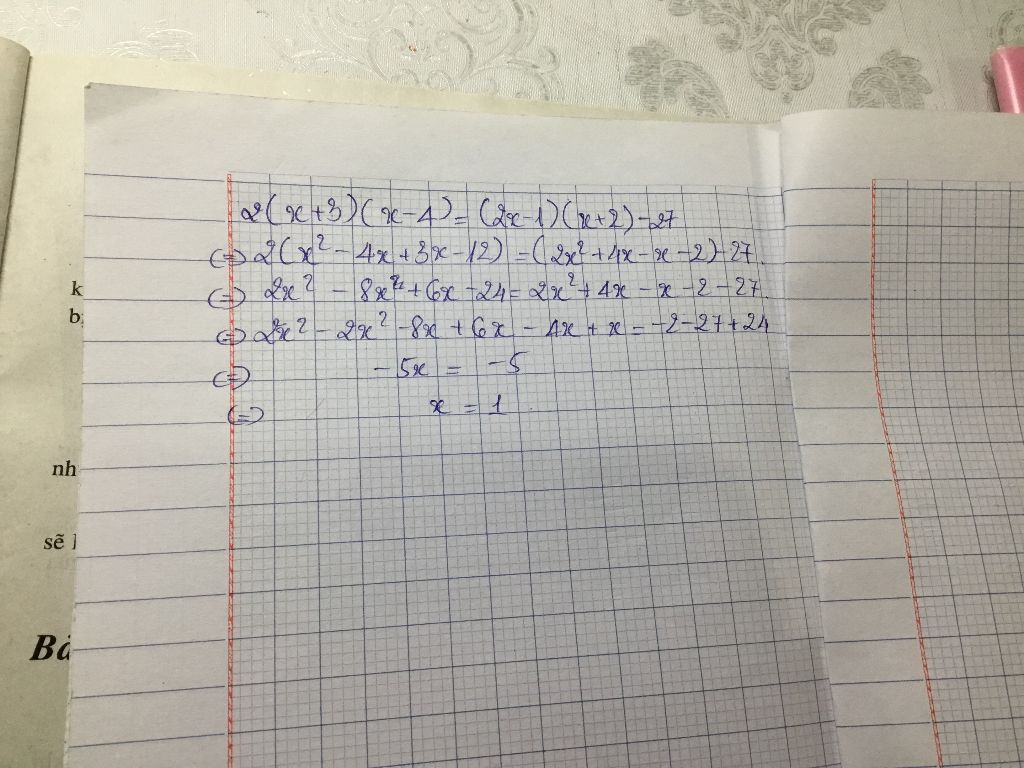 2(x+3)(x-4)=(2x-1)(x+2)-27
k
(=) 2(x²-4x+3x-12)=(2x²+4x-x-2)-27.
b,
(=) 2x²-8x²+6x-24=2x²+4x-x-2-27.
(=) 2x²-2x²-8x+6x-4x+x=-2-27+24
(=) -5x = -5
(=) x = 1
nh
sẽ
Bà